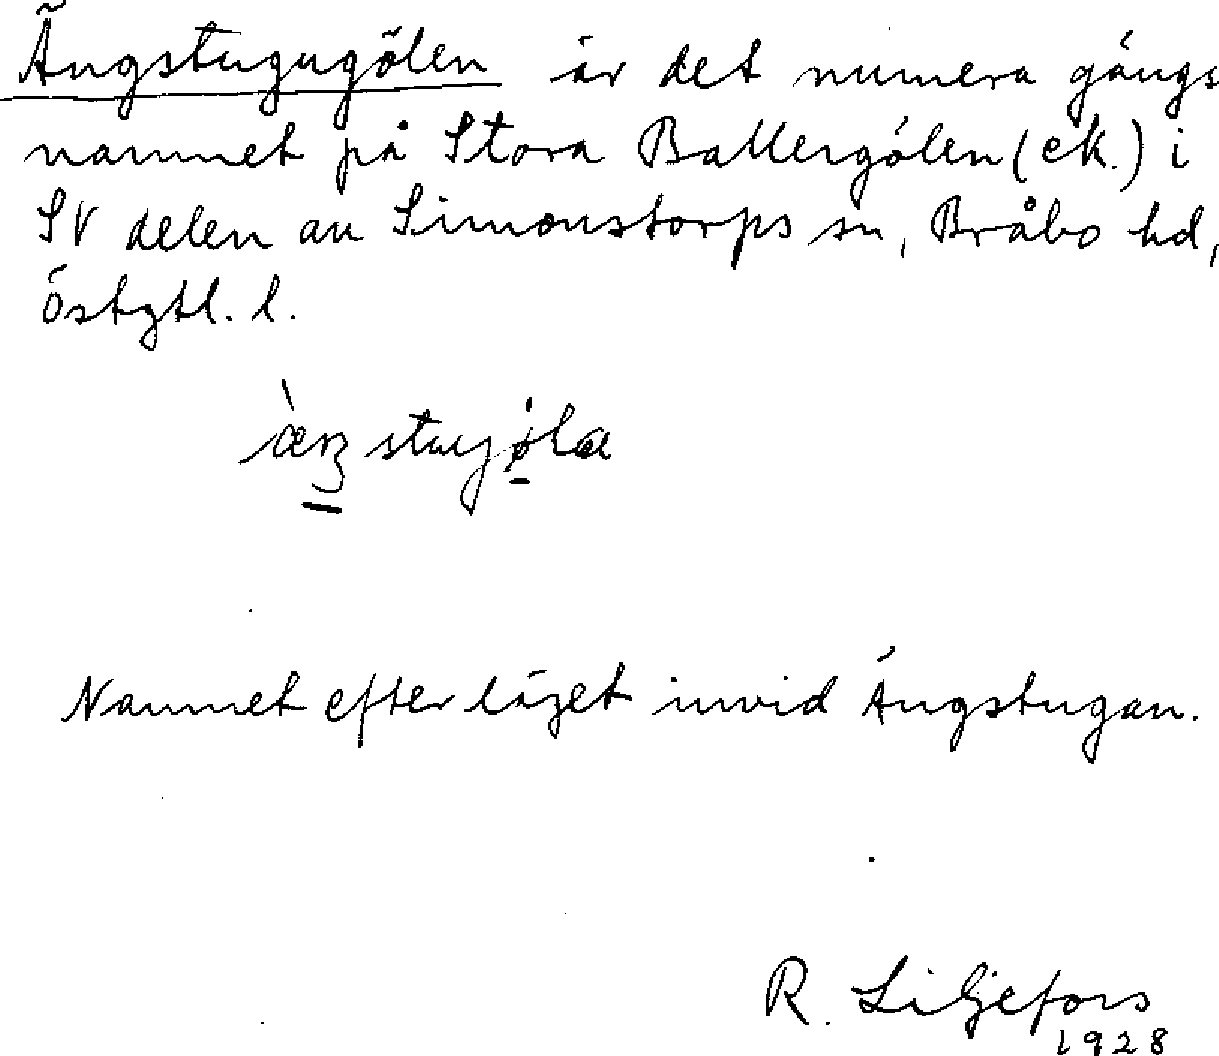 Ängstugugölen är det numera gängs
namnet på Stora Ballergölen (ek.) i
SV delen av Simonstorps sn, Bråbo hd,
Östgtl. l.
Namnet efter läget invid Ängstugan.
R. Liljefors
1928